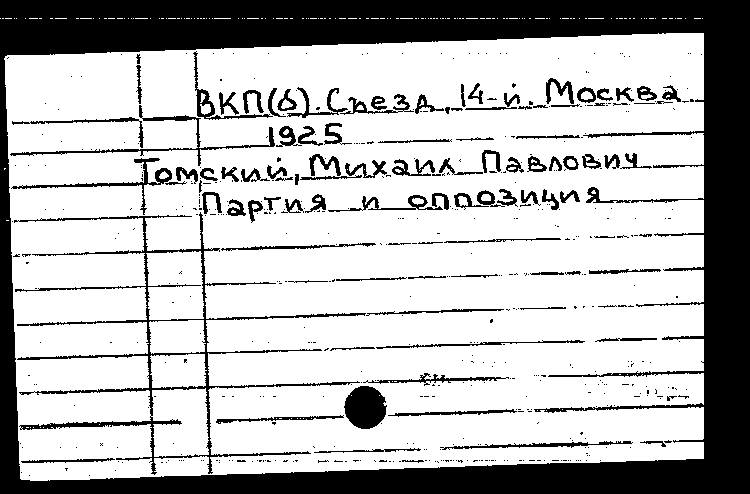 ВКП(б). Съезд, 14-й. Москва
1925
Томский, Михаил Павлович
Партия и оппозиция